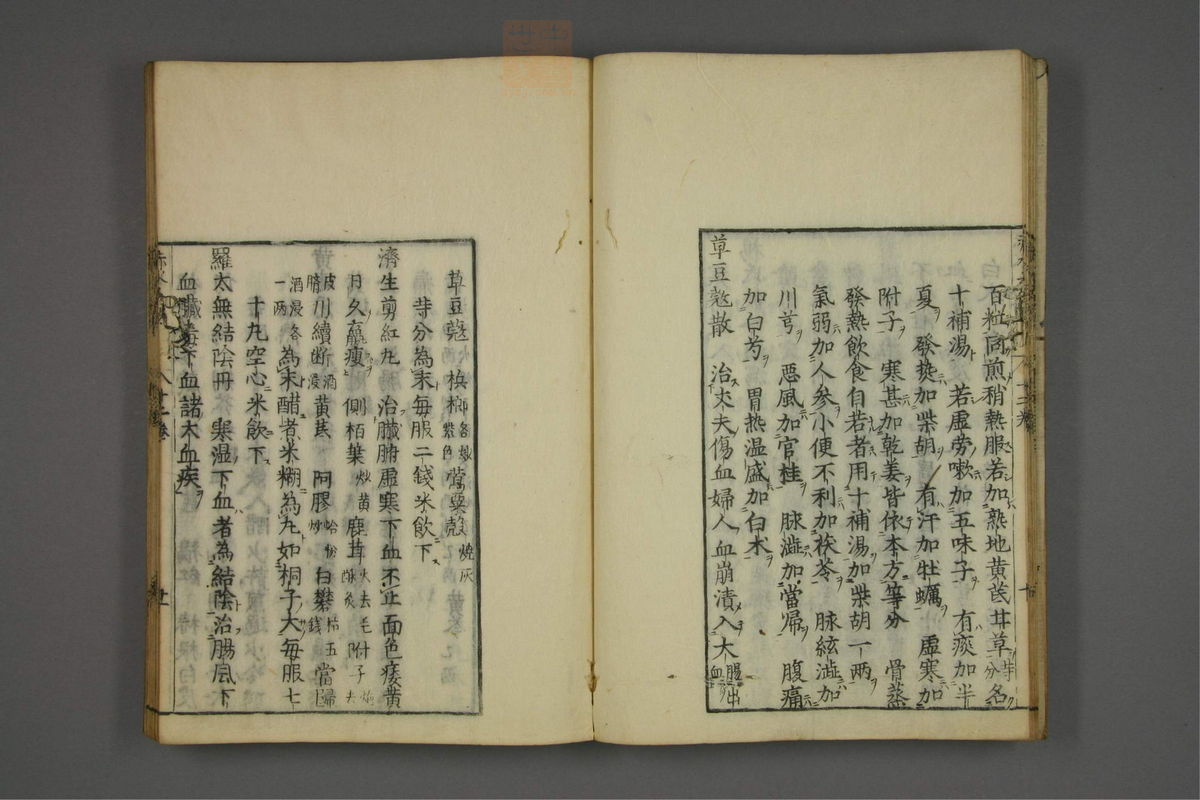 百粒同煎稍熱服若加熟地黄芪甘草各等分
十補湯　若虛勞嗽加五味子　有痰加半
夏　發熱加柴胡　有汗加牡蠣　虛寒加
附子　寒甚加乾姜皆依本方等分　骨蒸
發熱飲食自若者用十補湯加柴胡一両
氣弱加人参小便不利加茯苓　脉絃澁加
川芎　惡風加官桂　脉澁加當帰　腹痛
加白芍　胃热温盛加白术
草豆蔲散　治丈夫傷血婦人血崩漬入大腸出血
草豆蔲　槟榔各炒紫色　罌粟殼燒灰
等分為末每服二錢米飲下
濟生剪紅丸　治臓腑虛寒下血不止面色痿黄
日久羸瘦　側栢葉炒黄　鹿茸火去毛　附子炮去
皮臍　川續断酒浸　黄芪　阿膠　白礬枯五錢　當帰
酒浸各一両為末醋煮米糊為丸如桐子大每服七
十丸空心米飲下
羅太無結陰丹　寒湿下血者為結陰治腸風下
血臓毒下血諸大血疾